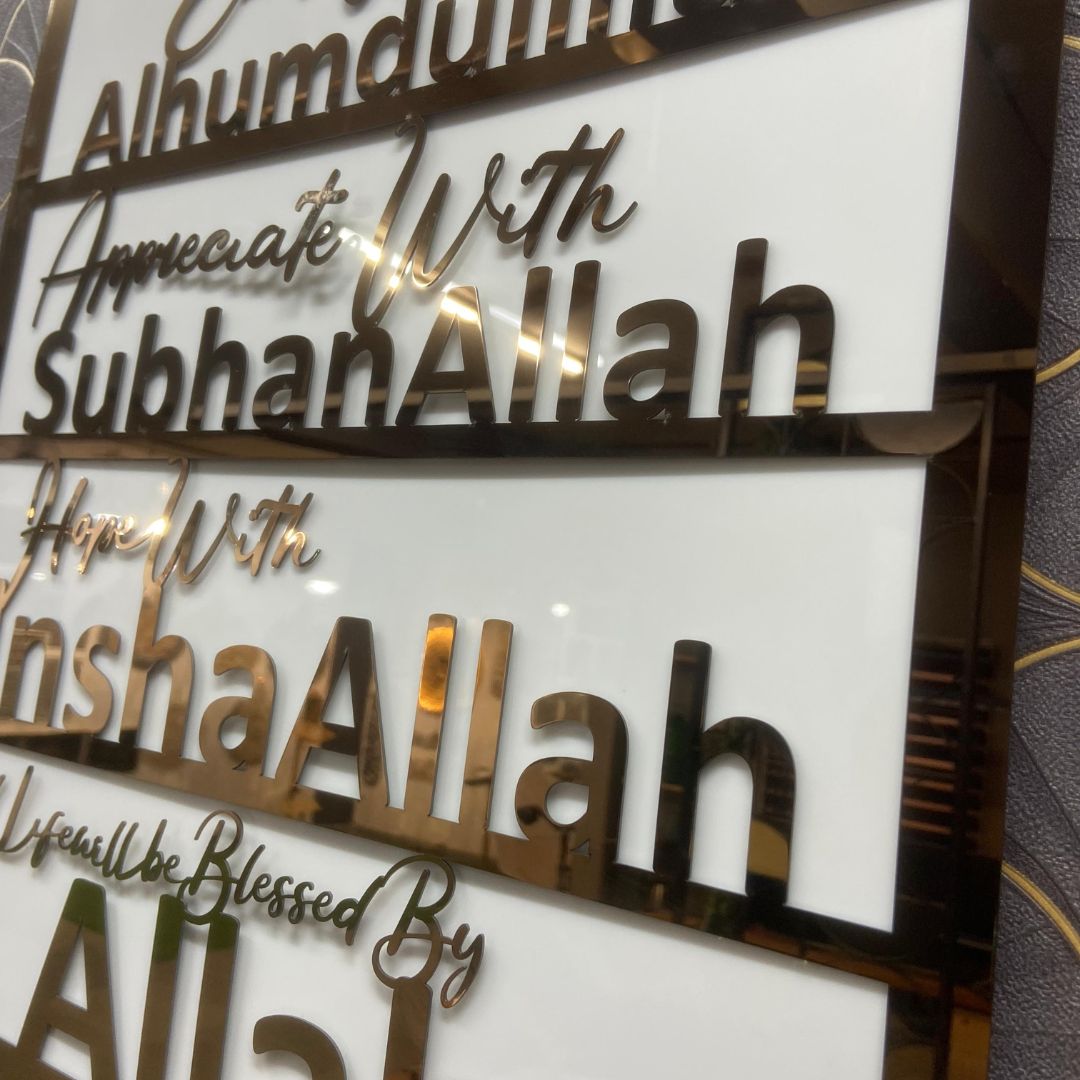 Appreciate With
SubhanAllah
Hope With
nshaAllah
Life will be Blessed By